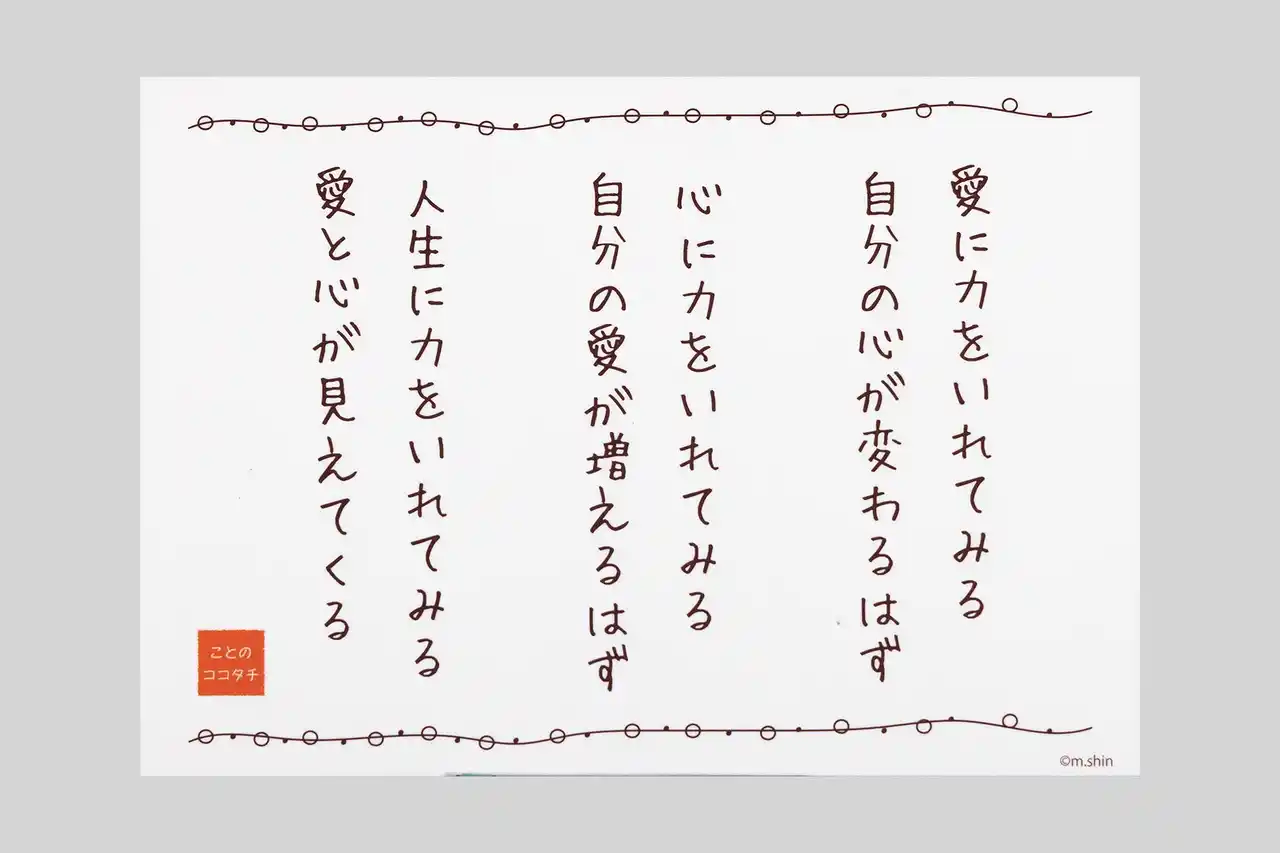 愛に力をいれてみる
自分の心が変わるはず
心に力をいれてみる
自分の愛が増えるはず
人生に力をいれてみる
愛と心が見えてくる
ことの
ココタチ
©m.shin